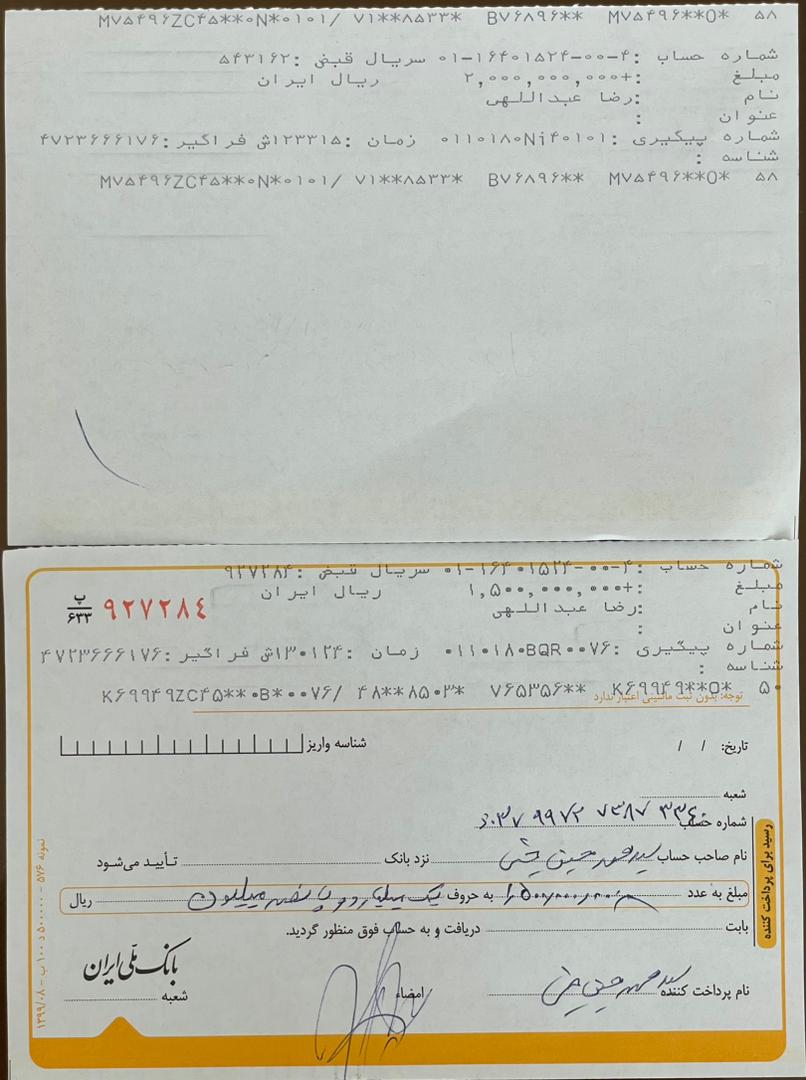 MV۵۴۹۶ZC۴۵**۰N*۰۱۰۱/ ۷۱**۸۵۳۳* BV۶۸۹۶** MV۵۴۹۶**O* ۵۸
شماره حساب :۴-۰۰-۱۶۴۰۱۵۲۴-۰۱ سریال قبض :۵۴۳۱۶۲
مبلغ :+۲,۰۰۰,۰۰۰,۰۰۰ ریال ایران
نام :رضا عبداللهی
عنوان :
شماره پیگیری :۰۱۱۰۱۸۰Ni۴۰۱۰۱ زمان :۱۲۳۳۱۵ش فراگیر :۴۷۲۳۶۶۶۱۷۶
شناسه :
MV۵۴۹۶ZC۴۵**۰N*۰۱۰۱/ ۷۱**۸۵۳۳* BV۶۸۹۶** MV۵۴۹۶**O* ۵۸
شماره حساب :۴-۰۰-۱۶۴۰۱۵۲۴-۰۱ سریال قبض :۹۲۷۲۸۴
مبلغ :+۱,۵۰۰,۰۰۰,۰۰۰ ریال ایران
پ ۶۳۳ ۹۲۷۲۸٤
نام :رضا عبداللهی
عنوان :
شماره پیگیری :۰۱۱۰۱۸۰BQR۰۰۷۶ زمان :۱۳۰۱۲۴ش فراگیر :۴۷۲۳۶۶۶۱۷۶
شناسه :
K۶۹۹۴۹ZC۴۵**۰B*۰۰۷۶/ ۴۸**۸۵۰۳* V۶۵۳۵۶** K۶۹۹۴۹**O* ۵۰
توجه: بدون ثبت ماشینی اعتبار ندارد
تاریخ: / /
شناسه واریز
شعبه
شماره حساب
نام صاحب حساب سید محمد حسین نزد بانک تأیید می‌شود
مبلغ به عدد ۱٫۵۰۰٫۰۰۰٫۰۰۰ به حروف یک میلیارد و پانصد میلیون ریال
بابت دریافت و به حساب فوق منظور گردید.
نام پرداخت کننده سید محمد حسین امضاء
بانک ملّی ایران
شعبه
رسید برای پرداخت کننده
نمونه ۵۷۶ - ۵۰۰۰۰۰ د ۱۰۰ ب - ۱۳۹۹/۰۸